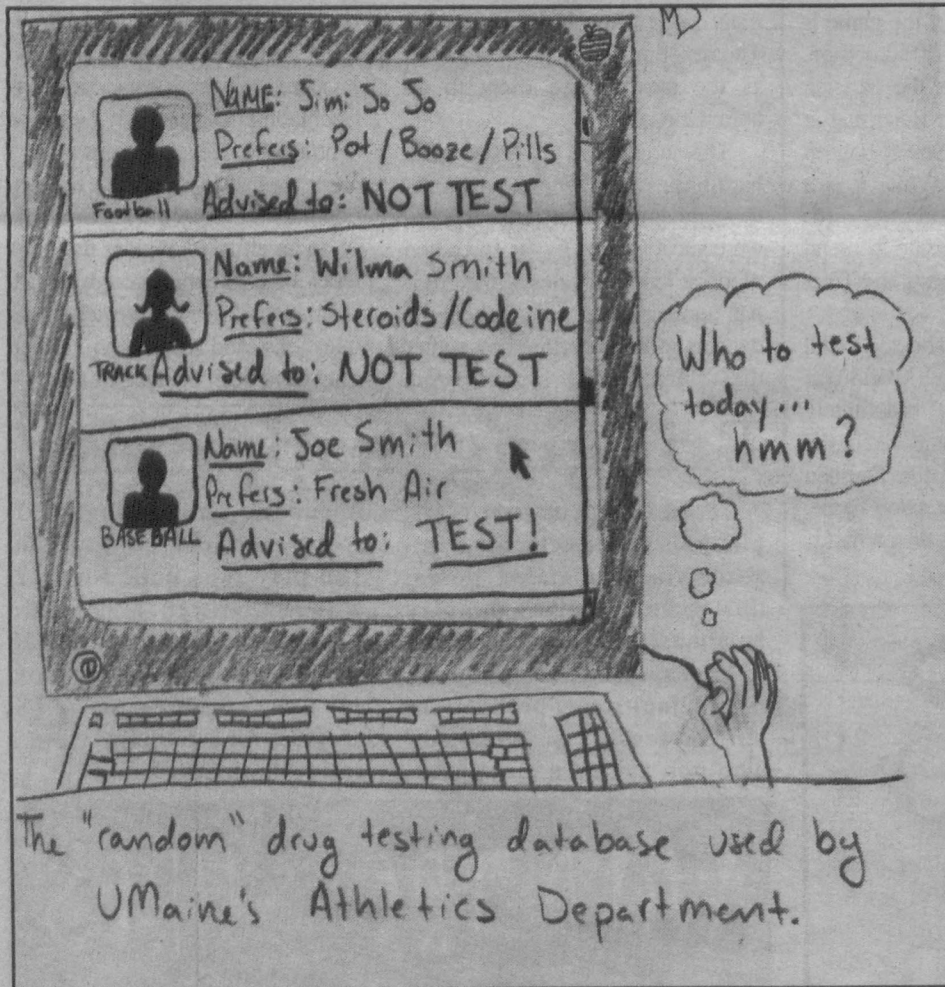 MD
NAME: Jimi Jo Jo
Prefers: Pot / Booze / Pills
Football
Advised to: NOT TEST
Name: Wilma Smith
Prefers: Steroids / Codeine
TRACK
Advised to: NOT TEST
Name: Joe Smith
Prefers: Fresh Air
BASEBALL
Advised to: TEST!
Who to test
today...
hmm?
The "random" drug testing database used by
UMaine's Athletics Department.